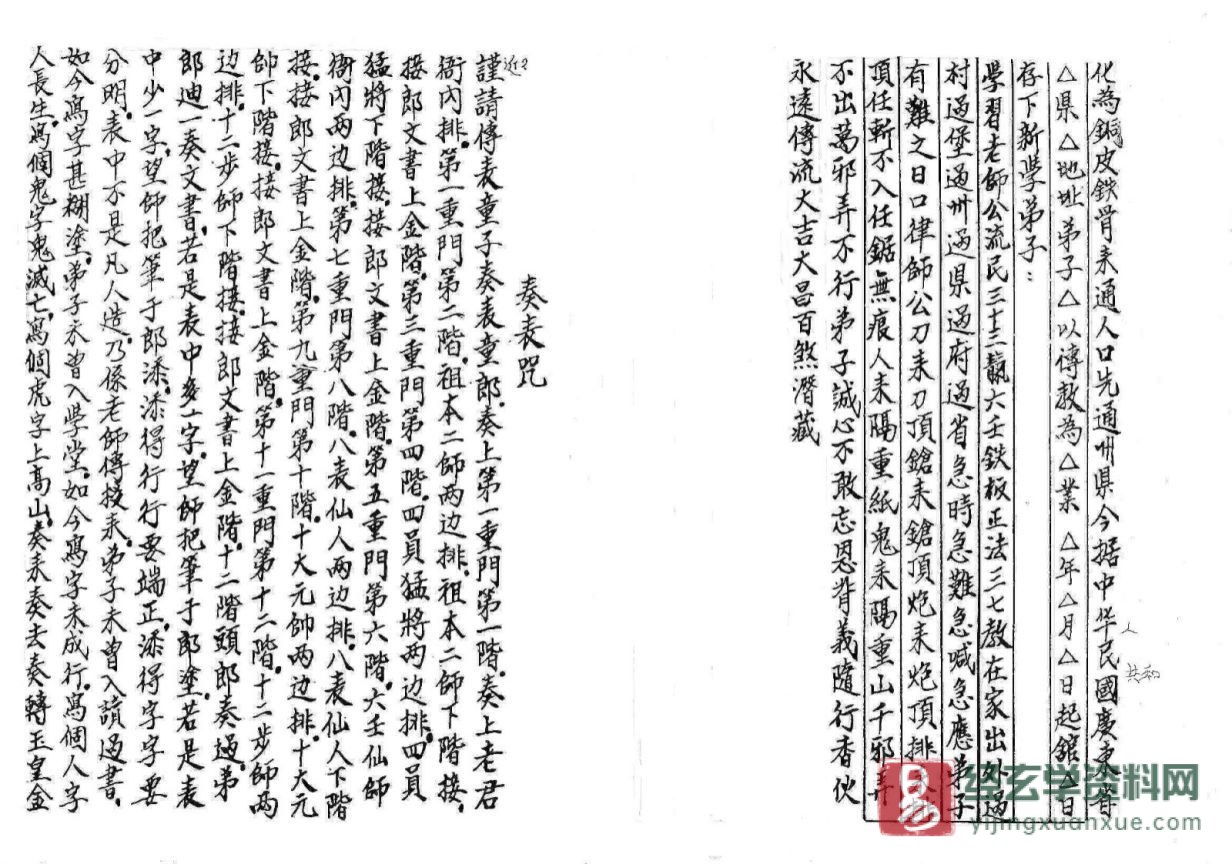 化為銅皮鉄骨耒通人口先通州県今据中华民國廣東省
人 共和
△県△地址弟子△以傳教為△業 △年△月△日起館△日
存下新学弟子：
学習老師公流民三十三 六壬鉄板正法三七教在家出外過
村過堡過州過県過府過省急時急難急喊急應弟子
有難之日口律師公刀耒刀頂鎗耒鎗頂炮耒炮頂排
頂任斬不入任鋸無痕人耒隔重紙鬼耒隔重山千邪弄
不出萬邪弄不行弟子誠心不敢忘恩背義隨行香伙
永遠傳流大吉大昌百煞潛藏
奏表咒
謹請傳表童子奏表童郎。奏上第一重門第一階。奏上老君
衙内排。第一重門第二階。祖本二師兩边排。祖本二師下階接。
接郎文書上金階。第三重門第四階。四員猛將兩边排。四員
猛將下階接。接郎文書上金階。第五重門第六階。六壬仙師
衙内兩边排。第七重門第八階。八表仙人兩边排。八表仙人下階
接。接郎文書上金階。第九重門第十階。十大元帥兩边排。十大元
帥下階接。接郎文書上金階。第十一重門第十二階。十二步師兩
边排。十二步師下階接。接郎文書上金階。十二階頭郎奏過。弟
郎迪一奏文書。若是表中多一字。望師把筆于郎塗。若是表
中少一字。望師把筆于郎添。添得行行要端正。添得字字要
分明。表中不是凡人造。乃係老師傳授耒。弟子未曾入讀過書。
如今寫字甚糊塗。弟子未曾入學堂。如今寫字未成行。寫個人字
人長生。寫個鬼字鬼滅亡。寫個虎字上高山。奏耒奏去奏轉玉皇金
易
经玄学资料网
yijingxuanxue.com